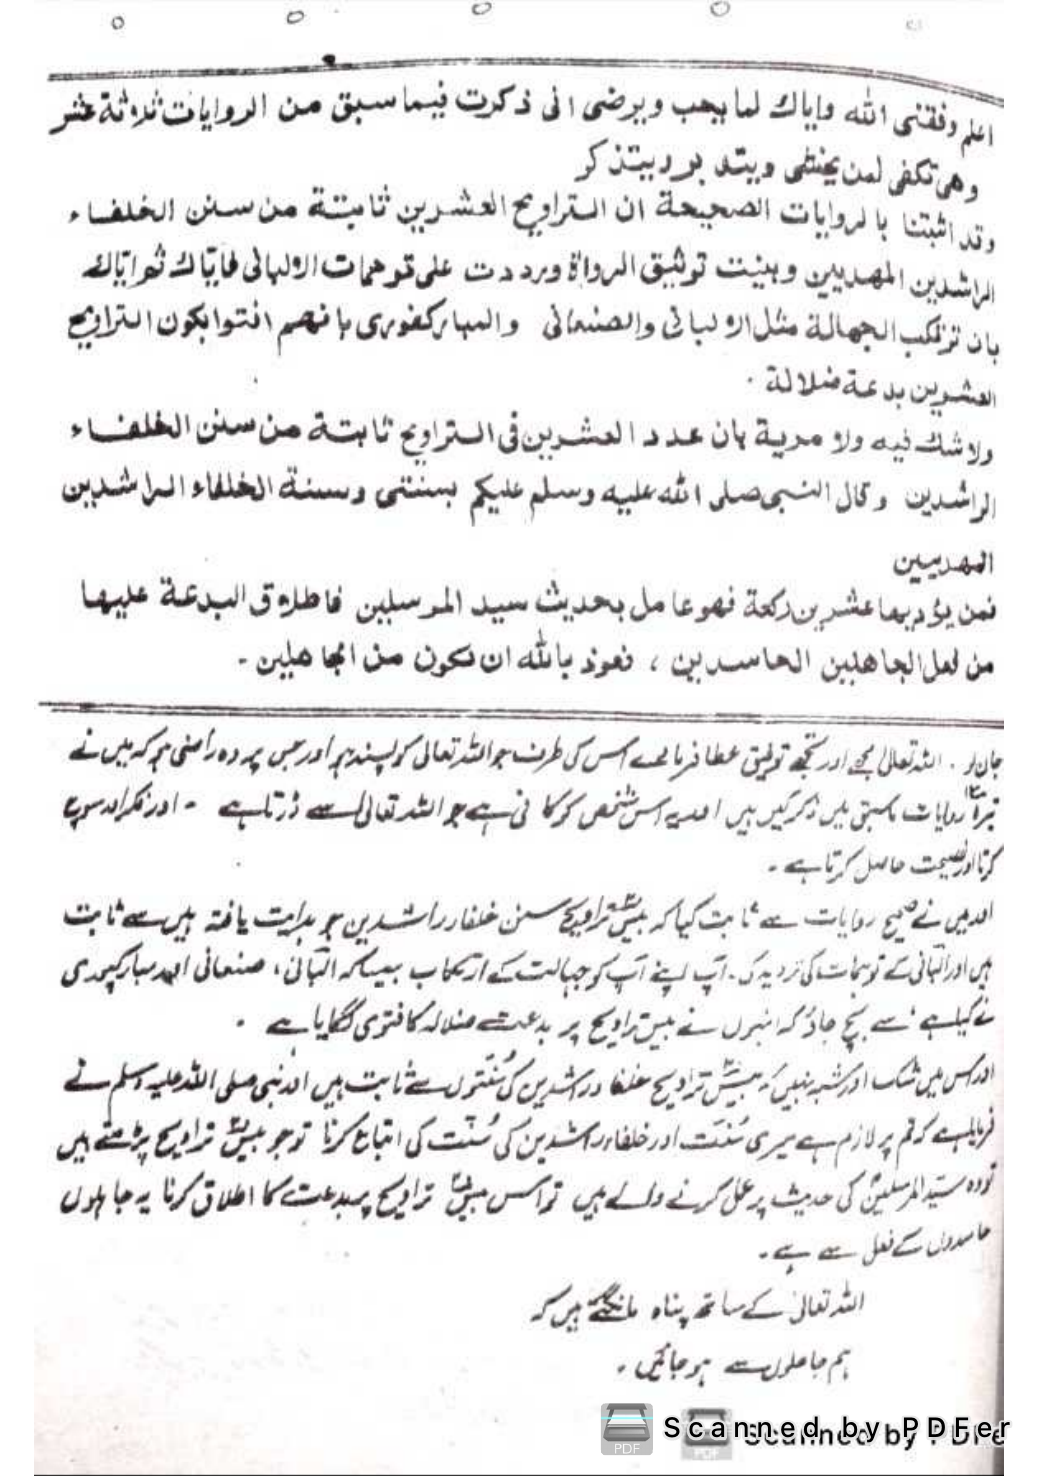 اعلم وفقنى الله واياك لما يحب ويرضى انى ذكرت فيما سبق من الروايات ثلاثة عشر
وهى تكفى لمن يخشى ويتدبر ويتذكر
وقد اثبتنا بالروايات الصحيحة ان التراويح العشرين ثابتة من سنن الخلفاء
الراشدين المهديين وبينت توثيق الرواة ورددت على توهمات الالبانى فاياك ثم اياك
بان ترتكب الجهالة مثل الالبانى والصنعانى والمباركفورى بانهم افتوا بكون التراويح
العشرين بدعة ضلالة .
ولا شك فيه ولا مرية بان عدد العشرين فى التراويح ثابتة من سنن الخلفاء
الراشدين وقال النبى صلى الله عليه وسلم عليكم بسنتى وسنة الخلفاء الراشدين
المهديين
فمن يؤديها عشرين ركعة فهو عامل بحديث سيد المرسلين فاطلاق البدعة عليها
من فعل الجاهلين الحاسدين ، نعوذ بالله ان نكون من الجاهلين ۔
جان لو ۔ اللہ تعالیٰ مجھے اور تجھے توفیق عطا فرمائے اس کی طرف جو اللہ تعالیٰ کو پسند ہو اور جس پر وہ راضی ہو کہ میں نے
تیرہ ۱۳ روایات ماسبق میں ذکر کیں ہیں اور یہ اس شخص کو کافی ہے جو اللہ تعالیٰ سے ڈرتا ہے ۔ اور فکر اور سوچ
کرتا اور نصیحت حاصل کرتا ہے ۔
اور میں نے صحیح روایات سے ثابت کیا کہ بیس۲۰ تراویح سنن خلفاء راشدین جو ہدایت یافتہ ہیں سے ثابت
ہیں اور البانی کے توہمات کی تردید کی ۔ آپ اپنے آپ کو جہالت کے ارتکاب جیسا کہ البانی، صنعانی اور مبارکپوری
نے کیا ہے اسے بچ جاؤ کہ انہوں نے بیس تراویح پر بدعت ضلالہ کا فتویٰ لگایا ہے ۔
اور اس میں شک اور شبہ نہیں کہ بیس۲۰ تراویح خلفاء راشدین کی سُنتوں سے ثابت ہیں اور نبی صلی اللہ علیہ وسلم نے
فرمایا ہے کہ تم پر لازم ہے میری سُنت اور خلفاء راشدین کی سُنّت کی اتباع کرنا تو جو بیس۲۰ تراویح پڑھتے ہیں
تو وہ سیّد المرسلینؐ کی حدیث پر عمل کرنے والے ہیں تو اس بیس۲۰ تراویح پر بدعت کا اطلاق کرنا یہ جاہلوں
حاسدوں کے فعل سے ہے ۔
اللہ تعالیٰ کے ساتھ پناہ مانگتے ہیں کہ
ہم جاھلوں سے ہو جائیں ۔
Scanned by PDFer
Scanned by PDFe